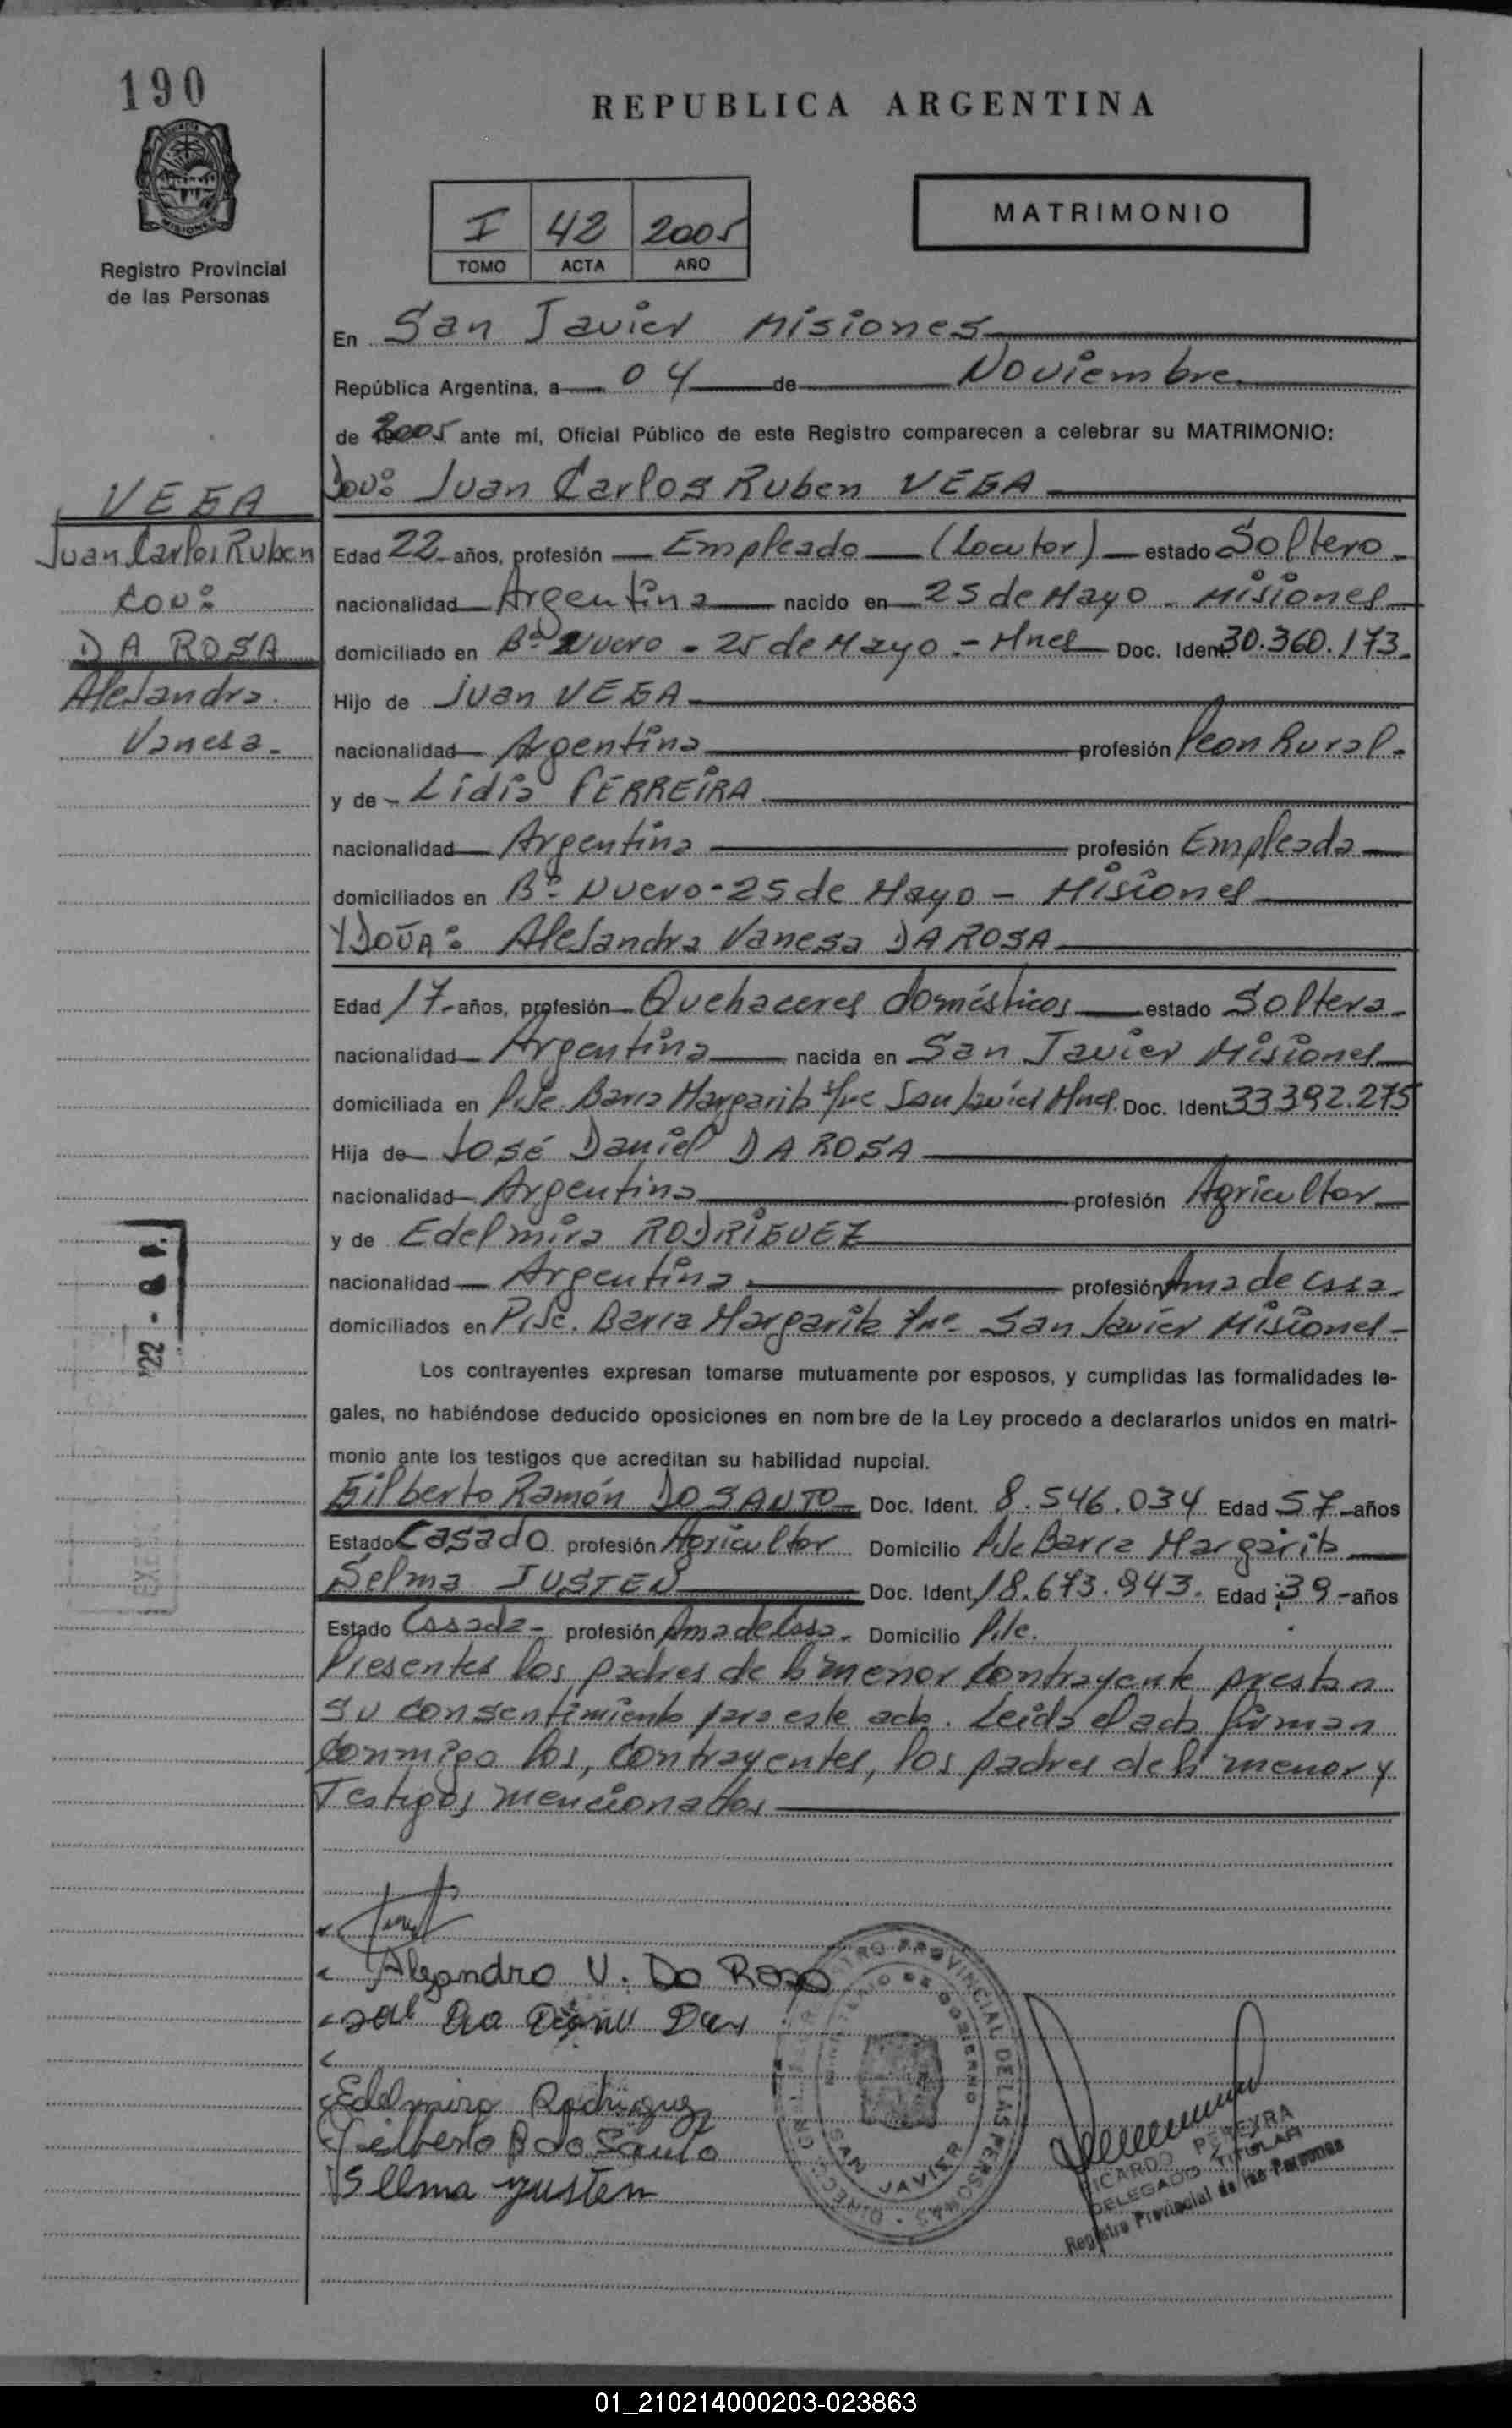 190
REPUBLICA ARGENTINA
MISIONES
Registro Provincial
de las Personas
I 42 2005
TOMO ACTA AÑO
MATRIMONIO
En San Javier Misiones
República Argentina, a 04 de Noviembre
de 2005 ante mí, Oficial Público de este Registro comparecen a celebrar su MATRIMONIO:
VEGA
Juan Carlos Ruben
con:
DA ROSA
Alejandra
Vanesa.
Don: Juan Carlos Ruben VEGA
Edad 22 años, profesión Empleado (Locutor) estado Soltero
nacionalidad Argentina nacido en 25 de Mayo - Misiones
domiciliado en Bº Nuevo - 25 de Mayo - Mnes Doc. Ident. 30.360.173
Hijo de Juan VEGA
nacionalidad Argentina profesión Peon Rural
y de Lidia FERREIRA
nacionalidad Argentina profesión Empleada
domiciliados en Bº Nuevo - 25 de Mayo - Misiones
Y DOÑA: Alejandra Vanesa DA ROSA
Edad 17 años, profesión Quehaceres domésticos estado Soltera
nacionalidad Argentina nacida en San Javier Misiones
domiciliada en Pje. Barra Margarita San Javier Mnes. Doc. Ident. 33.392.275
Hija de José Daniel DA ROSA
nacionalidad Argentina profesión Agricultor
y de Edelmira RODRIGUEZ
nacionalidad Argentina profesión Ama de Casa
domiciliados en Pje. Barra Margarita San Javier Misiones
Los contrayentes expresan tomarse mutuamente por esposos, y cumplidas las formalidades le-
gales, no habiéndose deducido oposiciones en nombre de la Ley procedo a declararlos unidos en matri-
monio ante los testigos que acreditan su habilidad nupcial.
Gilberto Ramón DO SANTO Doc. Ident. 8.546.034 Edad 57 años
Estado Casado profesión Agricultor Domicilio Pje Barra Margarita
Selma JUSTEN Doc. Ident. 18.673.943. Edad 39 años
Estado Casada profesión Ama de Casa Domicilio Pje.
Presentes los padres de la menor contrayente prestan
su consentimiento para este acto. Leida el acta firman
conmigo los, contrayentes, los padres de la menor y
Testigos mencionados
Alejandra V. Da Rosa
Edelmira Rodriguez
Gilberto R do Santo
Sellma Yusten
REGISTRO PROVINCIAL DE LAS PERSONAS
MINISTERIO DE GOBIERNO
SAN JAVIER
RICARDO PEREYRA
DELEGADO TITULAR
Registro Provincial de las Personas
01_210214000203-023863